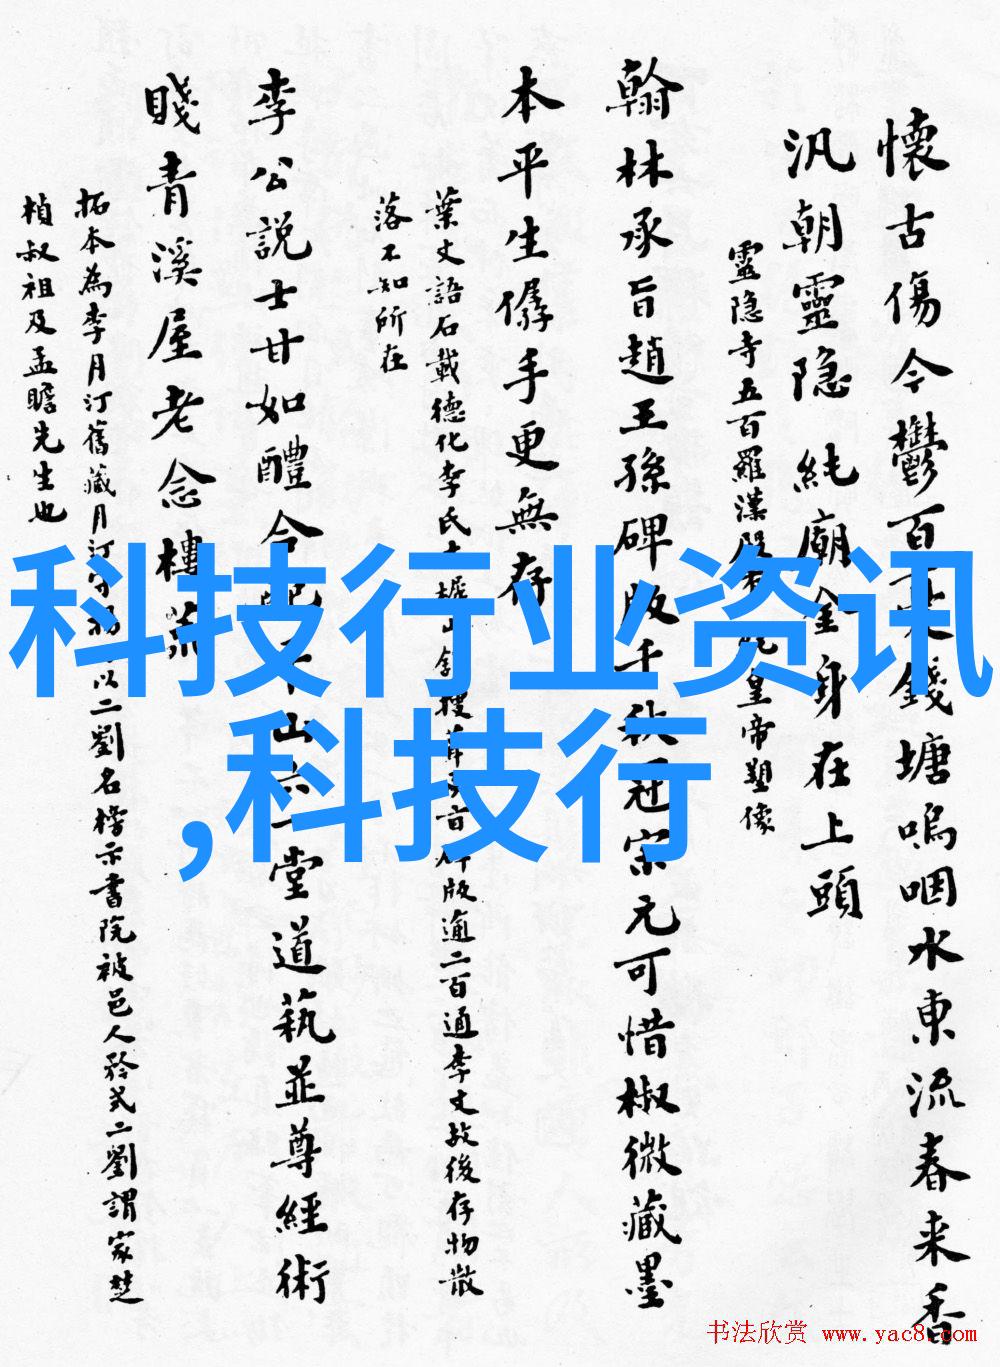 懷古傷今鬱百憂錢塘嗚咽水東流春来香
汎朝靈隐純廟金身在上頭
靈隐寺五百羅漢皇帝塑像
翰林承旨趙王孫碑版千秋冠宋元可惜椒微藏墨
本平生儔手更無存
葉文語石載德化李氏木犀山版逾二百通李文故後存物散
落不知所在
李公説士甘如醴今山六一堂道藝並尊經術
賤青溪屋老念樓荒
拓本為李月汀舊藏月汀以二劉名榜示書院被邑人矜式二劉謂家楚
楨叔祖及孟瞻先生也
科技行业资讯
,科技行
书法欣赏 www.yac8.com